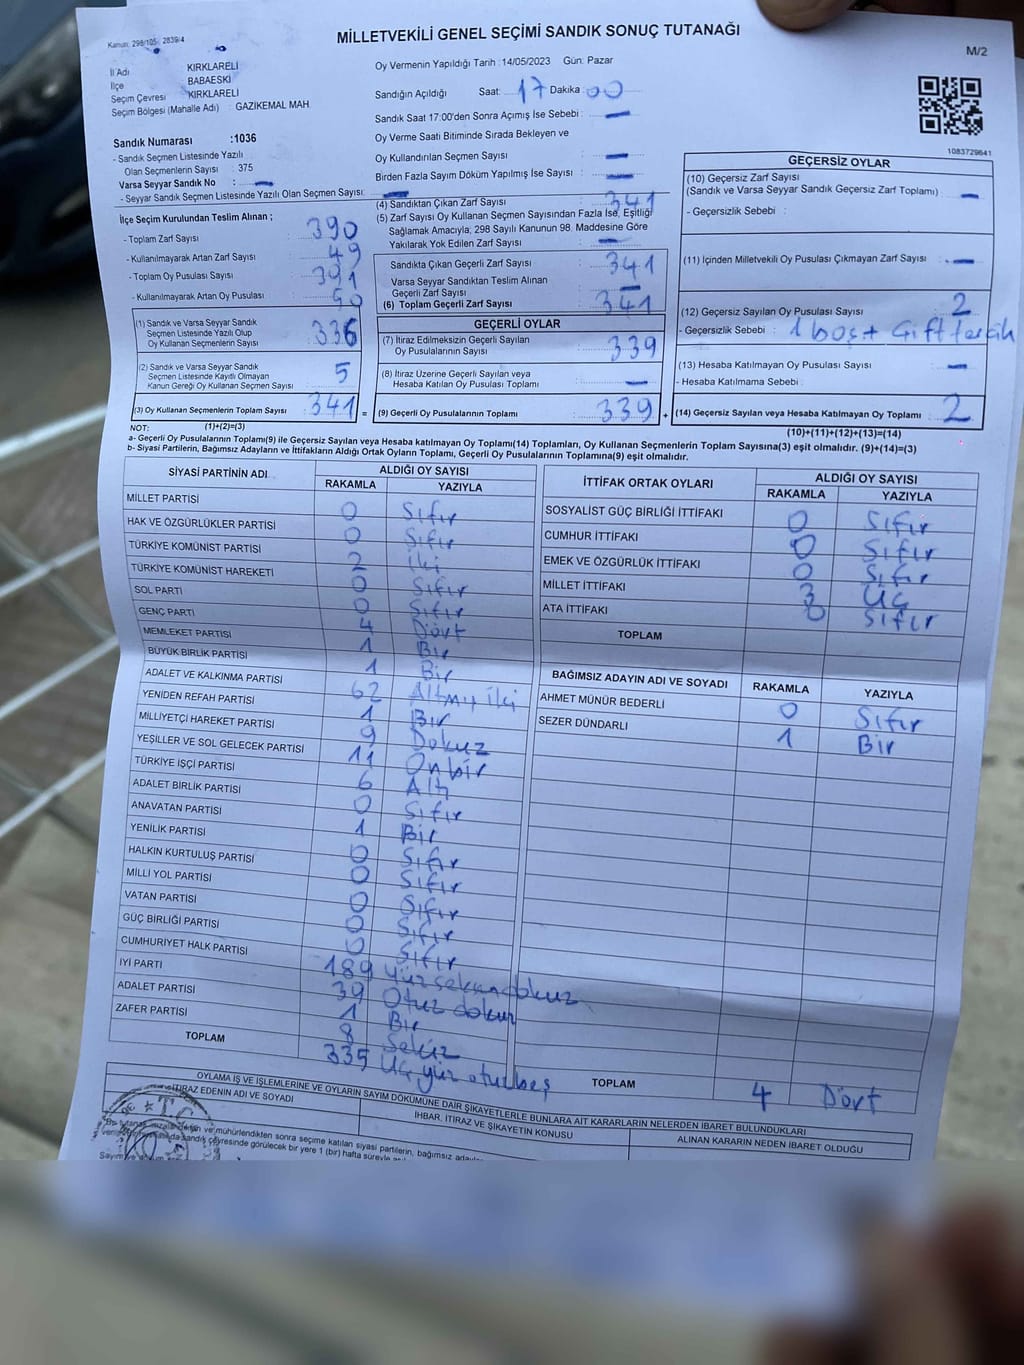 Kanun: 298/105 2839/4
MİLLETVEKİLİ GENEL SEÇİMİ SANDIK SONUÇ TUTANAĞI
M/2
İl Adı KIRKLARELİ
İlçe BABAESKİ
Seçim Çevresi KIRKLARELİ
Seçim Bölgesi (Mahalle Adı) : GAZİKEMAL MAH.
Oy Vermenin Yapıldığı Tarih :14/05/2023 Gün: Pazar
Sandığın Açıldığı Saat: 17 Dakika: 00
Sandık Saat 17:00'den Sonra Açımış İse Sebebi : —
Oy Verme Saati Bitiminde Sırada Bekleyen ve
Oy Kullandırılan Seçmen Sayısı : —
Birden Fazla Sayım Döküm Yapılmış İse Sayısı : —
1083729641
Sandık Numarası :1036
- Sandık Seçmen Listesinde Yazılı
Olan Seçmenlerin Sayısı : 375
Varsa Seyyar Sandık No : —
- Seyyar Sandık Seçmen Listesinde Yazılı Olan Seçmen Sayısı: —
İlçe Seçim Kurulundan Teslim Alınan ;
- Toplam Zarf Sayısı : 390
- Kullanılmayarak Artan Zarf Sayısı : 49
- Toplam Oy Pusulası Sayısı : 391
- Kullanılmayarak Artan Oy Pusulası : 50
(1) Sandık ve Varsa Seyyar Sandık
Seçmen Listesinde Yazılı Olup
Oy Kullanan Seçmenlerin Sayısı : 336
(2) Sandık ve Varsa Seyyar Sandık
Seçmen Listesinde Kayıtlı Olmayan
Kanun Gereği Oy Kullanan Seçmen Sayısı : 5
(3) Oy Kullanan Seçmenlerin Toplam Sayısı : 341 =
(1)+(2)=(3)
(4) Sandıktan Çıkan Zarf Sayısı : 341
(5) Zarf Sayısı Oy Kullanan Seçmen Sayısından Fazla İse, Eşitliği
Sağlamak Amacıyla; 298 Sayılı Kanunun 98. Maddesine Göre
Yakılarak Yok Edilen Zarf Sayısı : —
Sandıkta Çıkan Geçerli Zarf Sayısı : 341
Varsa Seyyar Sandıktan Teslim Alınan
Geçerli Zarf Sayısı : —
(6) Toplam Geçerli Zarf Sayısı : 341
GEÇERLİ OYLAR
(7) İtiraz Edilmeksizin Geçerli Sayılan
Oy Pusulalarının Sayısı : 339
(8) İtiraz Üzerine Geçerli Sayılan veya
Hesaba Katılan Oy Pusulası Toplamı : —
(9) Geçerli Oy Pusulalarının Toplamı : 339 +
GEÇERSİZ OYLAR
(10) Geçersiz Zarf Sayısı
(Sandık ve Varsa Seyyar Sandık Geçersiz Zarf Toplamı) : —
- Geçersizlik Sebebi :
(11) İçinden Milletvekili Oy Pusulası Çıkmayan Zarf Sayısı : —
(12) Geçersiz Sayılan Oy Pusulası Sayısı : 2
- Geçersizlik Sebebi : 1 boş + Çift tercih
(13) Hesaba Katılmayan Oy Pusulası Sayısı : —
- Hesaba Katılmama Sebebi :
(14) Geçersiz Sayılan veya Hesaba Katılmayan Oy Toplamı : 2
(10)+(11)+(12)+(13)=(14)
NOT:
a- Geçerli Oy Pusulalarının Toplamı(9) ile Geçersiz Sayılan veya Hesaba katılmayan Oy Toplamı(14) Toplamları, Oy Kullanan Seçmenlerin Toplam Sayısına(3) eşit olmalıdır. (9)+(14)=(3)
b- Siyasi Partilerin, Bağımsız Adayların ve İttifakların Aldığı Ortak Oyların Toplamı, Geçerli Oy Pusulalarının Toplamına(9) eşit olmalıdır.
SİYASİ PARTİNİN ADI ALDIĞI OY SAYISI
RAKAMLA YAZIYLA
MİLLET PARTİSİ 0 Sıfır
HAK VE ÖZGÜRLÜKLER PARTİSİ 0 Sıfır
TÜRKİYE KOMÜNİST PARTİSİ 2 iki
TÜRKİYE KOMÜNİST HAREKETİ 0 Sıfır
SOL PARTİ 0 Sıfır
GENÇ PARTİ 4 Dört
MEMLEKET PARTİSİ 1 Bir
BÜYÜK BİRLİK PARTİSİ 1 Bir
ADALET VE KALKINMA PARTİSİ 62 Altmış iki
YENİDEN REFAH PARTİSİ 1 Bir
MİLLİYETÇİ HAREKET PARTİSİ 9 Dokuz
YEŞİLLER VE SOL GELECEK PARTİSİ 11 Onbir
TÜRKİYE İŞÇİ PARTİSİ 6 Altı
ADALET BİRLİK PARTİSİ 0 Sıfır
ANAVATAN PARTİSİ 1 Bir
YENİLİK PARTİSİ 0 Sıfır
HALKIN KURTULUŞ PARTİSİ 0 Sıfır
MİLLİ YOL PARTİSİ 0 Sıfır
VATAN PARTİSİ 0 Sıfır
GÜÇ BİRLİĞİ PARTİSİ 0 Sıfır
CUMHURİYET HALK PARTİSİ 189 Yüzseksendokuz
İYİ PARTİ 39 Otuz dokuz
ADALET PARTİSİ 1 Bir
ZAFER PARTİSİ 8 Sekiz
TOPLAM 335 Üç yüz otuzbeş
İTTİFAK ORTAK OYLARI ALDIĞI OY SAYISI
RAKAMLA YAZIYLA
SOSYALİST GÜÇ BİRLİĞİ İTTİFAKI 0 Sıfır
CUMHUR İTTİFAKI 0 Sıfır
EMEK VE ÖZGÜRLÜK İTTİFAKI 0 Sıfır
MİLLET İTTİFAKI 3 Üç
ATA İTTİFAKI 0 Sıfır
TOPLAM
BAĞIMSIZ ADAYIN ADI VE SOYADI RAKAMLA YAZIYLA
AHMET MÜNÜR BEDERLİ 0 Sıfır
SEZER DÜNDARLI 1 Bir
TOPLAM 4 Dört
OYLAMA İŞ VE İŞLEMLERİNE VE OYLARIN SAYIM DÖKÜMÜNE DAİR ŞİKAYETLERLE BUNLARA AİT KARARLARIN NELERDEN İBARET BULUNDUKLARI
İTİRAZ EDENİN ADI VE SOYADI
İHBAR, İTİRAZ VE ŞİKAYETİN KONUSU
ALINAN KARARIN NEDEN İBARET OLDUĞU
T.C.
mühürlendikten sonra seçime katılan siyasi partilerin, bağımsız
sandık çevresinde görülecek bir yere 1 (bir) hafta süreyle